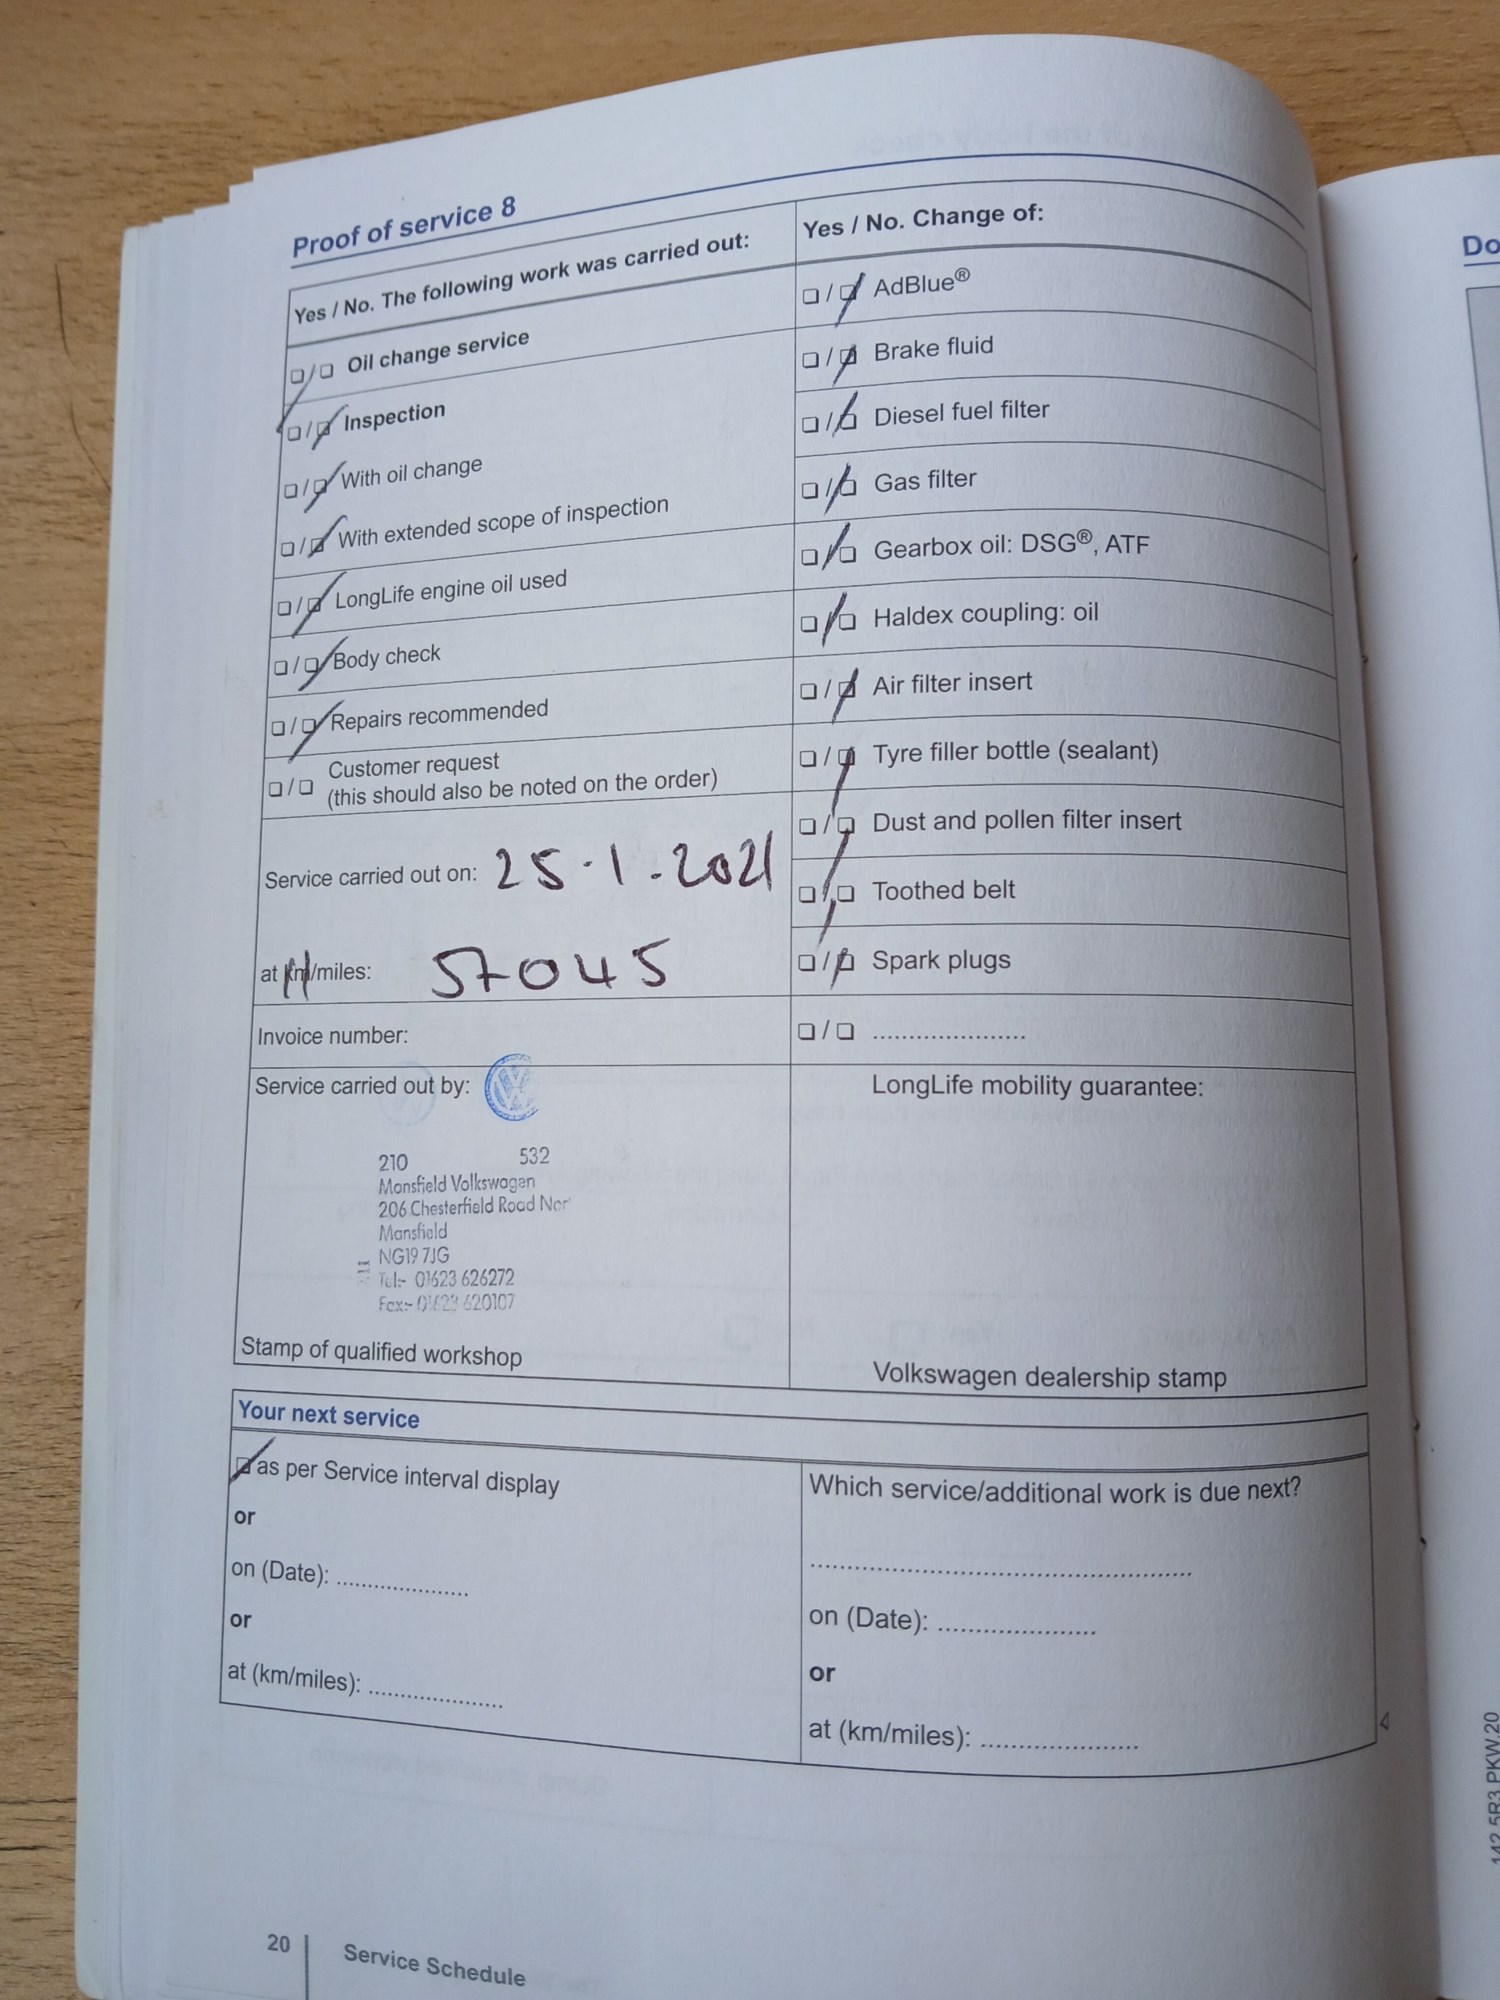 Proof of service 8
Yes / No. The following work was carried out:
Oil change service
Inspection
With oil change
With extended scope of inspection
LongLife engine oil used
Body check
Repairs recommended
Customer request
(this should also be noted on the order)
Service carried out on: 25.1.2021
at km/miles: 57045
Invoice number:
Service carried out by:
210 532
Mansfield Volkswagen
206 Chesterfield Road Nor
Mansfield
NG19 7JG
Tel:- 01623 626272
Fax:- 01623 620107
Stamp of qualified workshop
Yes / No. Change of:
AdBlue®
Brake fluid
Diesel fuel filter
Gas filter
Gearbox oil: DSG®, ATF
Haldex coupling: oil
Air filter insert
Tyre filler bottle (sealant)
Dust and pollen filter insert
Toothed belt
Spark plugs
......................
LongLife mobility guarantee:
Volkswagen dealership stamp
Your next service
as per Service interval display
or
on (Date): ....................
or
at (km/miles): ....................
Which service/additional work is due next?
..................................................
on (Date): ......................
or
at (km/miles): ......................
20 Service Schedule
Do
142.5R3.PKW.20